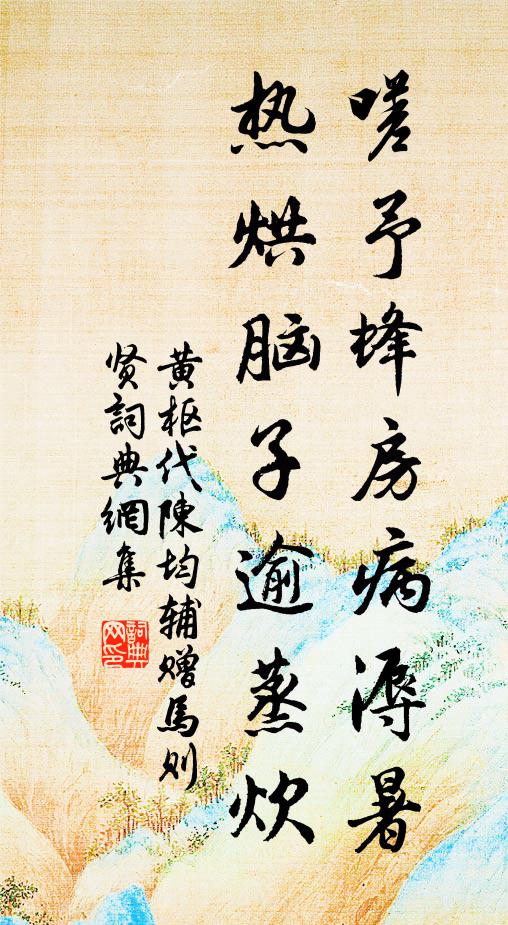 嗟予蜂房病溽暑
热烘脑子逾蒸炊
黄枢代陳均辅赠馬则
贤詞典網集
詞典网印